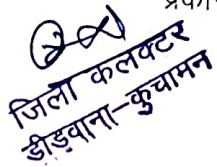 जिला कलक्टर
डीड़वाना-कुचामन